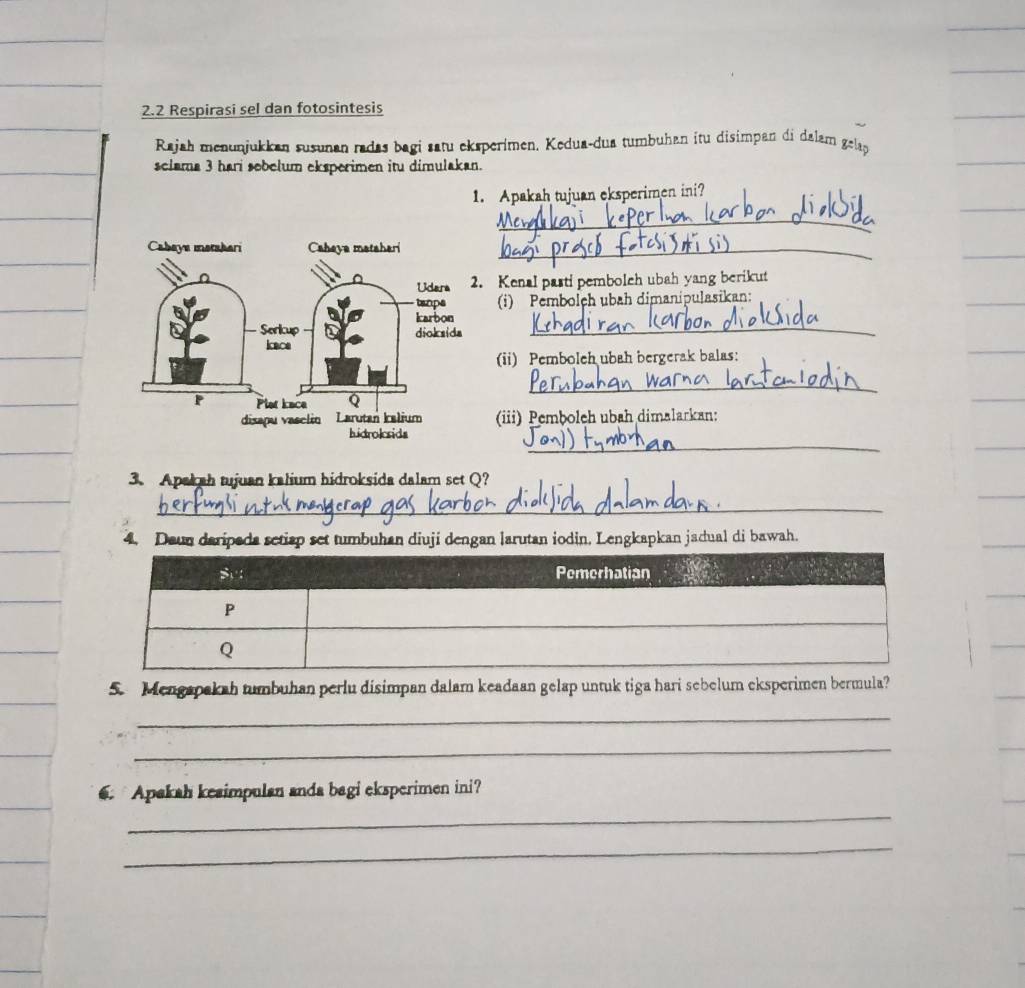 2.2 Respirasi sel dan fotosintesis
Rajah menunjukkan susunan radas bagi satu eksperimen. Kedua-dua tumbuhan itu disimpan di dalam gelap
selama 3 hari sebelum eksperimen itu dimulakan.
1. Apakah tujuan eksperimen ini?
Mengkaji keperluan karbon dioksida
bagi proses fotosintisis
Cahaya matahari
Cahaya matahari
Udara
tanpa
karbon
dioksida
Serkup
kaca
P
Plat kaca
disapu vaselin
Q
Larutan kalium
hidroksida
2. Kenal pasti pemboleh ubah yang berikut
(i) Pemboleh ubah dimanipulasikan:
Kehadiran karbon dioksida
(ii) Pemboleh ubah bergerak balas:
Perubahan warna larutan iodin
(iii) Pemboleh ubah dimalarkan:
tumbuhan
3. Apakah tujuan kalium hidroksida dalam set Q?
berfungsi untuk menyerap gas karbon dioksida dalam
4. Daun daripada setiap set tumbuhan diuji dengan larutan iodin. Lengkapkan jadual di bawah.
Set Pemerhatian
P
Q
5. Mengapakah tumbuhan perlu disimpan dalam keadaan gelap untuk tiga hari sebelum eksperimen bermula?
6. Apakah kesimpulan anda bagi eksperimen ini?